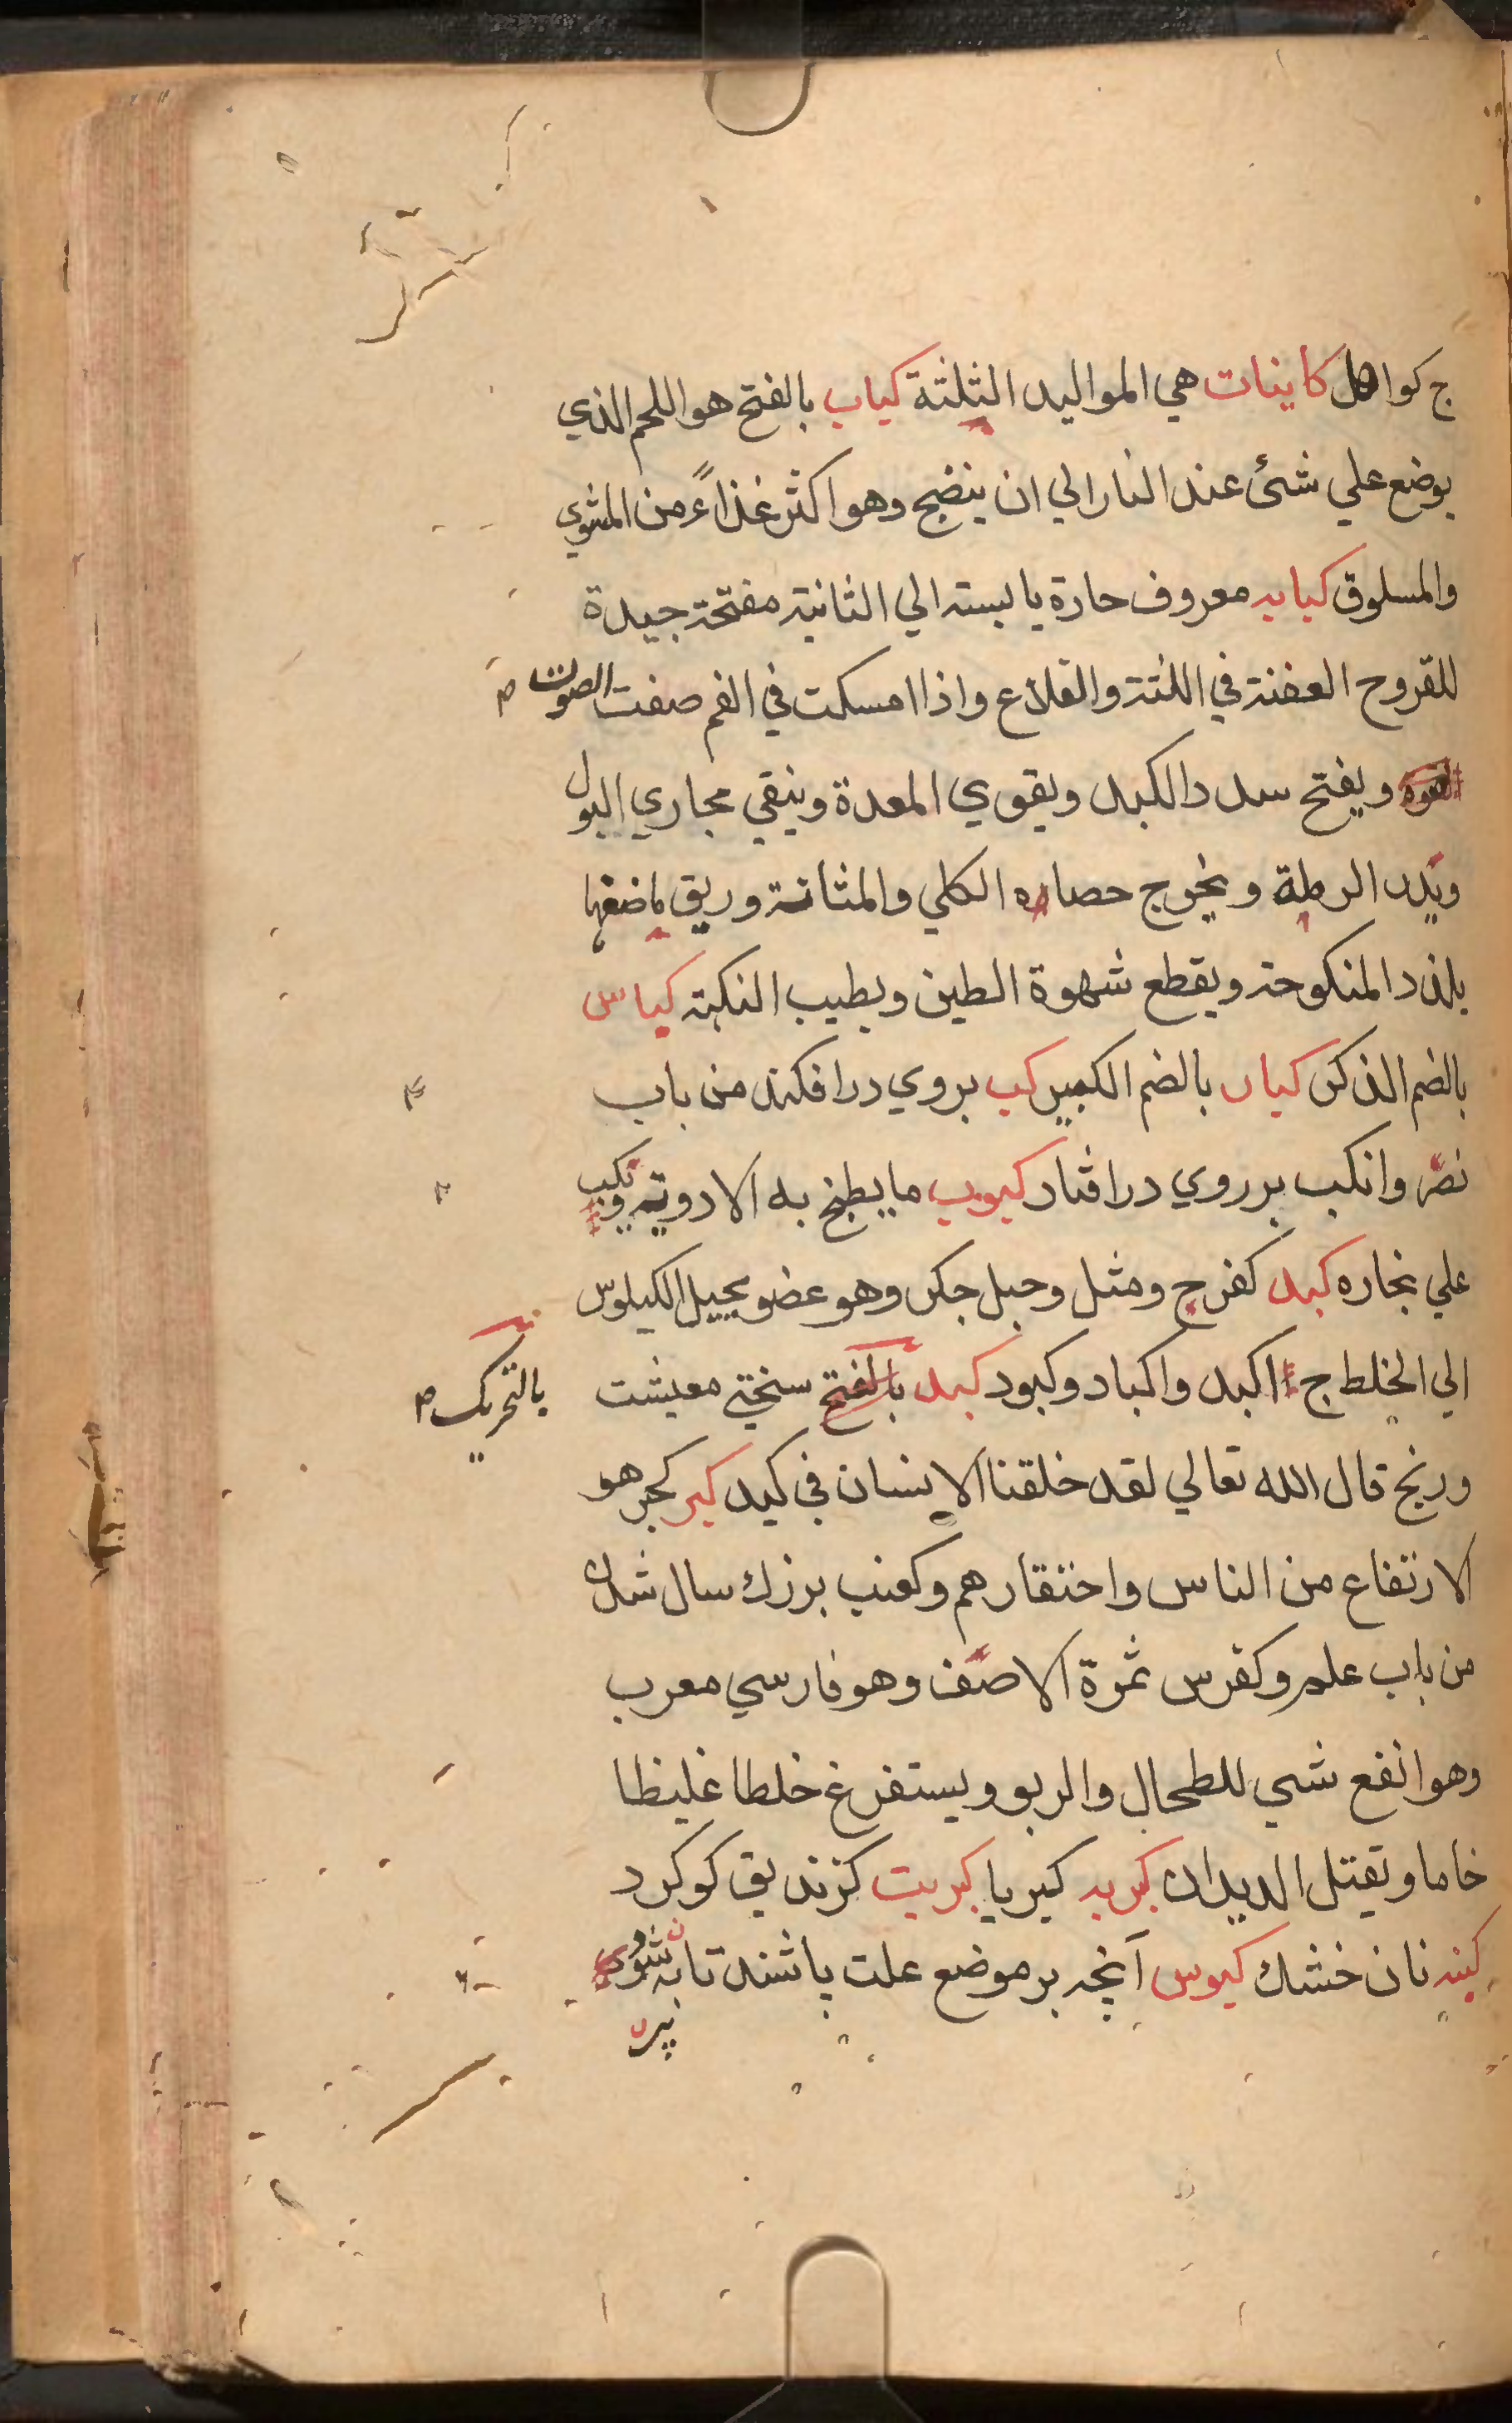 ج كواهل كاينات هي المواليد الثلثة كباب بالفتح هو اللحم الذي
يوضع علي شئ عند النار الي ان ينضج وهو اكثر غذاءً من المشوي
والمسلوق كبابه معروف حارة يابسته الي الثانية مفتحة جيدة
للقروح العفنة في اللثة والقلاع واذا امسكت في الفم صفت الصوت
ويفتح سدد الكبد ويقوي المعدة وينقي مجاري البول
ويخرج حصاه الكلي والمثانة وريق ماضغها
يلذذ المنكوحة ويقطع شهوة الطين ويطيب النكهة كباس
بالضم الذكر كبار بالضم الكبير كب بروي درافكند من باب
نصر وانكب بر روي درافتاد كبوب ما يطبخ به الادوية وتكب
علي بخاره كبد كفرح ومثل وحبل جكر وهو عضو يحيل الكيلوس
الي الخلط ج اكبد واكباد وكبود كبد بالفتح سختي معيشت بالتحريك
ورنج قال الله تعالي لقد خلقنا الانسان في كبد كبر كحبر هو
الارتفاع من الناس واحتقارهم وكعنب بزرك سال شدن
من باب علم وكفرس ثمرة الاصف وهو فارسي معرب
وهو انفع شي للطحال والربو ويستفرغ خلطا غليظا
خاما وتقتل الديدان كبربه كبربا كبريت كزنديق كوكرد
كبنه نان خشك كبوس آنچه بر موضع علت پاشند تا به شوي